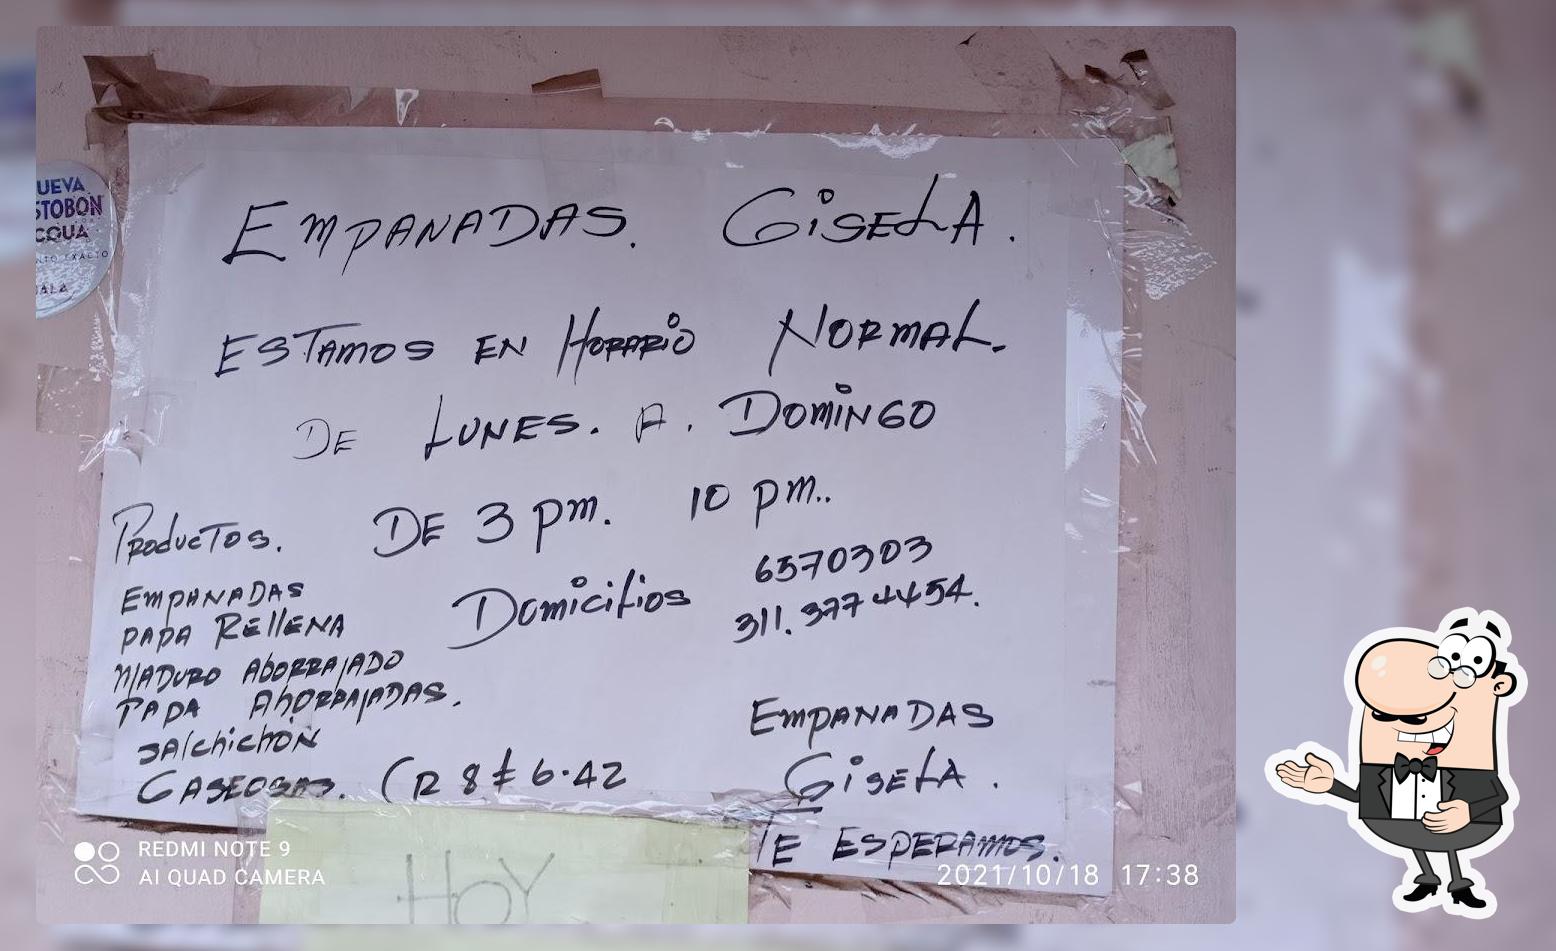 EMPANADAS. GISELA.
ESTAMOS EN HORARIO NORMAL.
DE LUNES. A. DOMINGO
DE 3 pm. 10 pm..
Domicilios 6570303
311.3774454.
PRODUCTOS.
EMPANADAS
PAPA RELLENA
MADURO ABORRAJADO
PAPA ABORRAJADAS.
SALCHICHON
GASEOSAS. CR 8 # 6-42
EMPANADAS
GISELA.
TE ESPERAMOS.
HOY
UEVA
STOBON
CQUA
NTO EXACTO
ALA
REDMI NOTE 9
AI QUAD CAMERA
2021/10/18 17:38